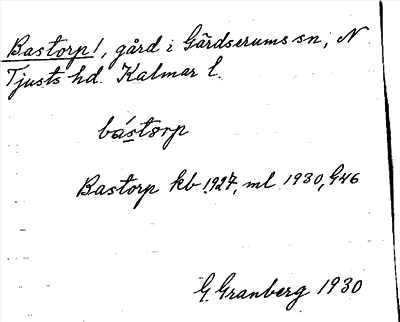 Bastorp 1, gård i Gärdserums sn, N
Tjusts hd. Kalmar l.
bástorp
Bastorp kb 1927, ml 1930, G46
G. Granberg 1930